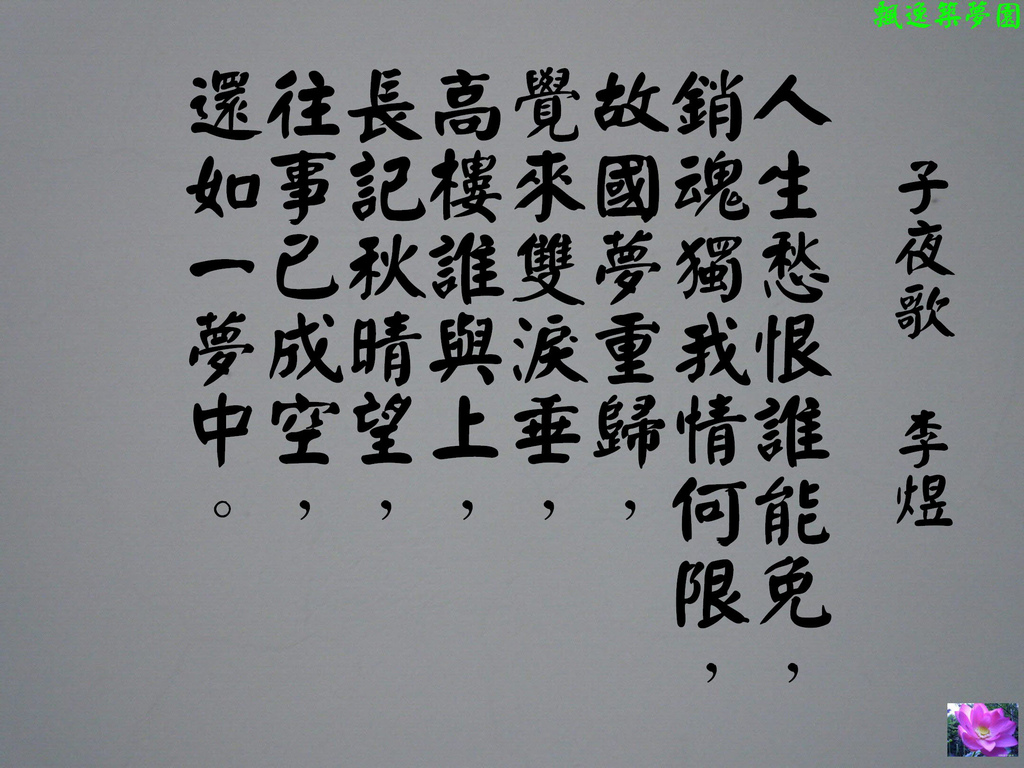 飄逸築夢園
子夜歌 李煜
人生愁恨誰能免,
銷魂獨我情何限,
故國夢重歸,
覺來雙淚垂,
高樓誰與上,
長記秋晴望,
往事已成空,
還如一夢中。